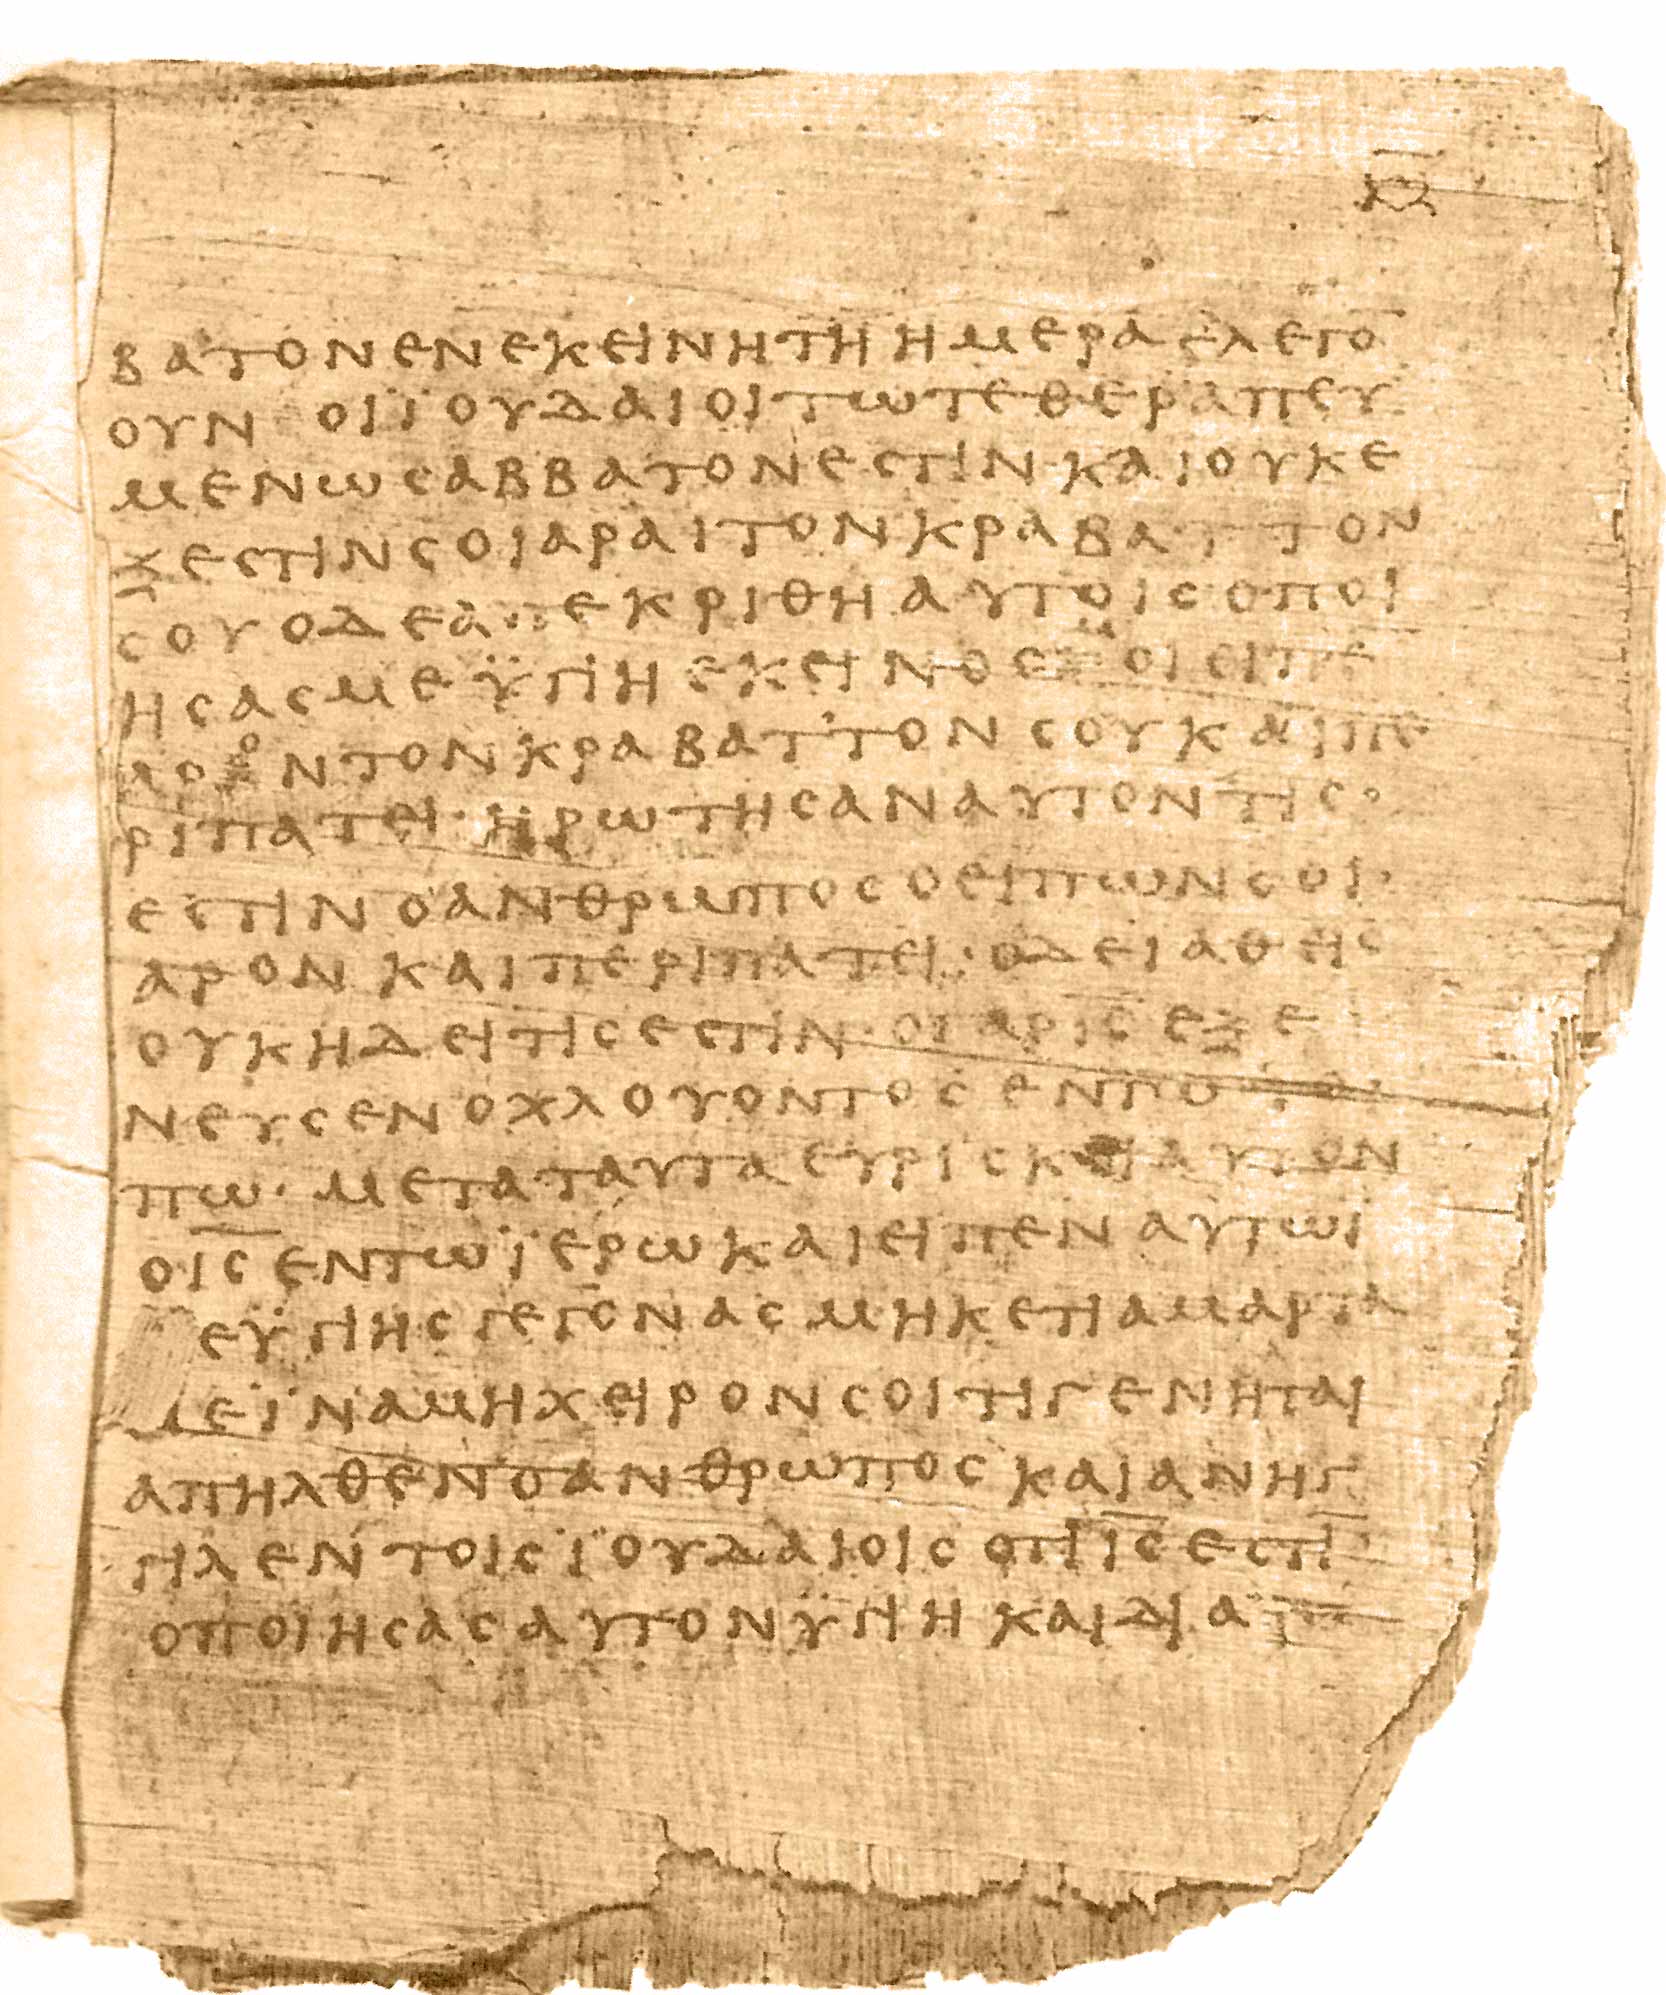 ΒΑΤΟΝΕΝΕΚΕΙΝΗΤΗΗΜΕΡΑΕΛΕΓΟ̅
ΟΥΝ ΟΙΪΟΥΔΑΙΟΙΤΩΤΕΘΕΡΑΠΕΥ
ΜΕΝΩϹΑΒΒΑΤΟΝΕϹΤΙΝ·ΚΑΙΟΥΚΕ
ΞΕϹΤΙΝϹΟΙΑΡΑΙΤΟΝΚΡΑΒΑΤΤΟΝ
ϹΟΥΟΔΕΑΠΕΚΡΙΘΗΑΥΤΟΙϹΟΠΟΙ
ΗϹΑϹΜΕΫΓΙΗΕΚΕΙΝΟϹΜΟΙΕΙΠΕ
ΑΡΟΝΤΟΝΚΡΑΒΑΤ'ΤΟΝϹΟΥΚΑΙΠΕ
ΡΙΠΑΤΕΙ·ΗΡΩΤΗϹΑΝΑΥΤΟΝΤΙϹ·
ΕϹΤΙΝΟΑΝΘΡΩΠΟϹΟΕΙΠΩΝϹΟΙ·
ΑΡΟΝΚΑΙΠΕΡΙΠΑΤΕΙ·ΟΔΕΙΑΘΕΙϹ
ΟΥΚΗΔΕΙΤΙϹΕϹΤΙΝ·ΟΓΑΡΙ̅Ϲ̅ΕΞΕ
ΝΕΥϹΕΝΟΧΛΟΥΟΝΤΟϹΕΝΤΩΤΟ
ΠΩ·ΜΕΤΑΤΑΥΤΑΕΥΡΙϹΚΕΙΑΥΤΟΝ
ΟΙ̅Ϲ̅ΕΝΤΩΪΕΡΩΚΑΙΕΙΠΕΝΑΥΤΩΙ
ΕΫΓΙΗϹΓΕΓΟΝΑϹΜΗΚΕΤΙΑΜΑΡΤΑ
ΝΕΪΝΑΜΗΧΕΙΡΟΝϹΟΙΤΙΓΕΝΗΤΑΙ
ΑΠΗΛΘΕΝΟΑΝΘΡΩΠΟϹΚΑΙΑΝΗΓ
ΓΙΛΕΝΤΟΙϹΪΟΥΔΑΙΟΙϹΟΤΙΙ̅Ϲ̅ΕϹΤΙ̅
ΟΠΟΙΗϹΑϹΑΥΤΟΝΫΓΙΗΚΑΙΔΙΑ